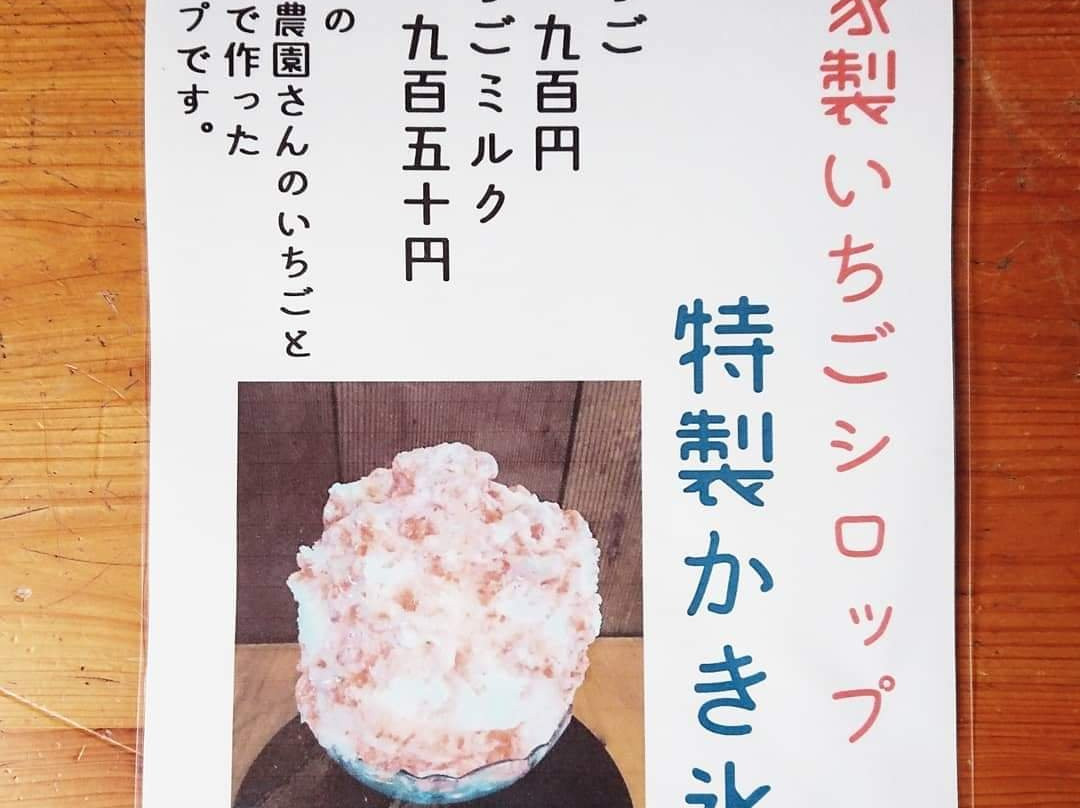 家製いちごシロップ
特製かき氷
ちご
九百円
ちごミルク
九百五十円
の
農園さんのいちごと
で作った
プです。